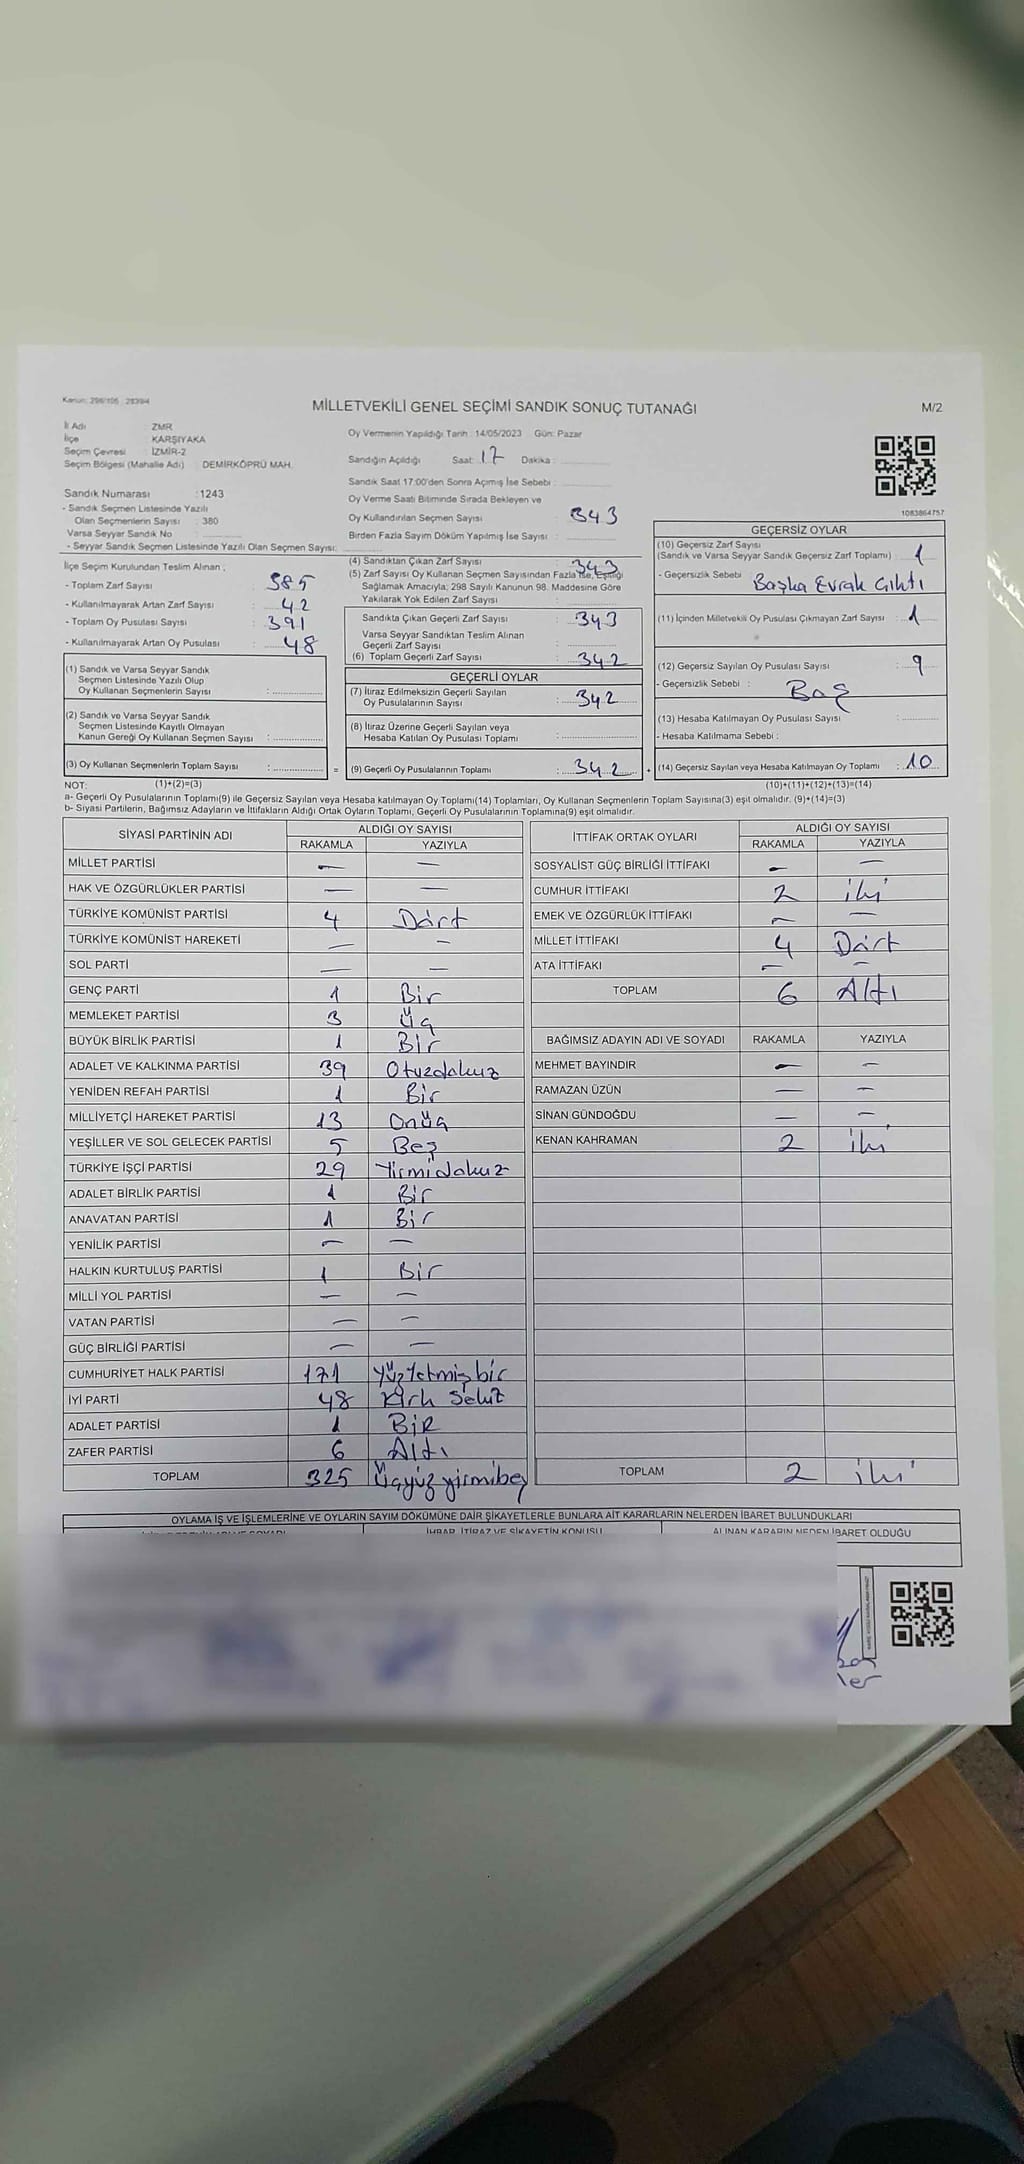 Kanun: 298/105 , 2839/4
MİLLETVEKİLİ GENEL SEÇİMİ SANDIK SONUÇ TUTANAĞI
M/2
İl Adı : ZMR
İlçe : KARŞIYAKA
Seçim Çevresi : İZMİR-2
Seçim Bölgesi (Mahalle Adı) : DEMİRKÖPRÜ MAH.
Sandık Numarası : 1243
- Sandık Seçmen Listesinde Yazılı
Olan Seçmenlerin Sayısı : 380
Varsa Seyyar Sandık No :
- Seyyar Sandık Seçmen Listesinde Yazılı Olan Seçmen Sayısı:
İlçe Seçim Kurulundan Teslim Alınan ;
- Toplam Zarf Sayısı : 385
- Kullanılmayarak Artan Zarf Sayısı : 42
- Toplam Oy Pusulası Sayısı : 391
- Kullanılmayarak Artan Oy Pusulası : 48
(1) Sandık ve Varsa Seyyar Sandık
Seçmen Listesinde Yazılı Olup
Oy Kullanan Seçmenlerin Sayısı :
(2) Sandık ve Varsa Seyyar Sandık
Seçmen Listesinde Kayıtlı Olmayan
Kanun Gereği Oy Kullanan Seçmen Sayısı :
(3) Oy Kullanan Seçmenlerin Toplam Sayısı : =
Oy Vermenin Yapıldığı Tarih : 14/05/2023 Gün: Pazar
Sandığın Açıldığı Saat: 17 Dakika :
Sandık Saat 17:00'den Sonra Açımış İse Sebebi :
Oy Verme Saati Bitiminde Sırada Bekleyen ve
Oy Kullandırılan Seçmen Sayısı : 343
Birden Fazla Sayım Döküm Yapılmış İse Sayısı :
(4) Sandıktan Çıkan Zarf Sayısı : 343
(5) Zarf Sayısı Oy Kullanan Seçmen Sayısından Fazla İse, Eşitliği
Sağlamak Amacıyla; 298 Sayılı Kanunun 98. Maddesine Göre
Yakılarak Yok Edilen Zarf Sayısı :
Sandıkta Çıkan Geçerli Zarf Sayısı : 343
Varsa Seyyar Sandıktan Teslim Alınan
Geçerli Zarf Sayısı :
(6) Toplam Geçerli Zarf Sayısı : 342
GEÇERLİ OYLAR
(7) İtiraz Edilmeksizin Geçerli Sayılan
Oy Pusulalarının Sayısı : 342
(8) İtiraz Üzerine Geçerli Sayılan veya
Hesaba Katılan Oy Pusulası Toplamı :
(9) Geçerli Oy Pusulalarının Toplamı : 342 +
1083864757
GEÇERSİZ OYLAR
(10) Geçersiz Zarf Sayısı
(Sandık ve Varsa Seyyar Sandık Geçersiz Zarf Toplamı) : 1
- Geçersizlik Sebebi : Başka Evrak Çıktı
(11) İçinden Milletvekili Oy Pusulası Çıkmayan Zarf Sayısı : 1
(12) Geçersiz Sayılan Oy Pusulası Sayısı : 9
- Geçersizlik Sebebi : Boş
(13) Hesaba Katılmayan Oy Pusulası Sayısı :
- Hesaba Katılmama Sebebi :
(14) Geçersiz Sayılan veya Hesaba Katılmayan Oy Toplamı : 10
NOT: (1)+(2)=(3) (10)+(11)+(12)+(13)=(14)
a- Geçerli Oy Pusulalarının Toplamı(9) ile Geçersiz Sayılan veya Hesaba katılmayan Oy Toplamı(14) Toplamları, Oy Kullanan Seçmenlerin Toplam Sayısına(3) eşit olmalıdır. (9)+(14)=(3)
b- Siyasi Partilerin, Bağımsız Adayların ve İttifakların Aldığı Ortak Oyların Toplamı, Geçerli Oy Pusulalarının Toplamına(9) eşit olmalıdır.
SİYASİ PARTİNİN ADI ALDIĞI OY SAYISI
RAKAMLA YAZIYLA
MİLLET PARTİSİ — —
HAK VE ÖZGÜRLÜKLER PARTİSİ — —
TÜRKİYE KOMÜNİST PARTİSİ 4 Dört
TÜRKİYE KOMÜNİST HAREKETİ — —
SOL PARTİ — —
GENÇ PARTİ 1 Bir
MEMLEKET PARTİSİ 3 Üç
BÜYÜK BİRLİK PARTİSİ 1 Bir
ADALET VE KALKINMA PARTİSİ 39 Otuzdokuz
YENİDEN REFAH PARTİSİ 1 Bir
MİLLİYETÇİ HAREKET PARTİSİ 13 Onüç
YEŞİLLER VE SOL GELECEK PARTİSİ 5 Beş
TÜRKİYE İŞÇİ PARTİSİ 29 Yirmidokuz
ADALET BİRLİK PARTİSİ 1 Bir
ANAVATAN PARTİSİ 1 Bir
YENİLİK PARTİSİ — —
HALKIN KURTULUŞ PARTİSİ 1 Bir
MİLLİ YOL PARTİSİ — —
VATAN PARTİSİ — —
GÜÇ BİRLİĞİ PARTİSİ — —
CUMHURİYET HALK PARTİSİ 171 Yüzyetmişbir
İYİ PARTİ 48 Kırk Sekiz
ADALET PARTİSİ 1 BİR
ZAFER PARTİSİ 6 Altı
TOPLAM 325 Üçyüzyirmibeş
İTTİFAK ORTAK OYLARI ALDIĞI OY SAYISI
RAKAMLA YAZIYLA
SOSYALİST GÜÇ BİRLİĞİ İTTİFAKI — —
CUMHUR İTTİFAKI 2 iki
EMEK VE ÖZGÜRLÜK İTTİFAKI — —
MİLLET İTTİFAKI 4 Dört
ATA İTTİFAKI — —
TOPLAM 6 Altı
BAĞIMSIZ ADAYIN ADI VE SOYADI RAKAMLA YAZIYLA
MEHMET BAYINDIR — —
RAMAZAN ÜZÜN — —
SİNAN GÜNDOĞDU — —
KENAN KAHRAMAN 2 iki
TOPLAM 2 iki
OYLAMA İŞ VE İŞLEMLERİNE VE OYLARIN SAYIM DÖKÜMÜNE DAİR ŞİKAYETLERLE BUNLARA AİT KARARLARIN NELERDEN İBARET BULUNDUKLARI
İHBAR, İTİRAZ VE ŞİKAYETİN KONUSU ALINAN KARARIN NEDEN İBARET OLDUĞU